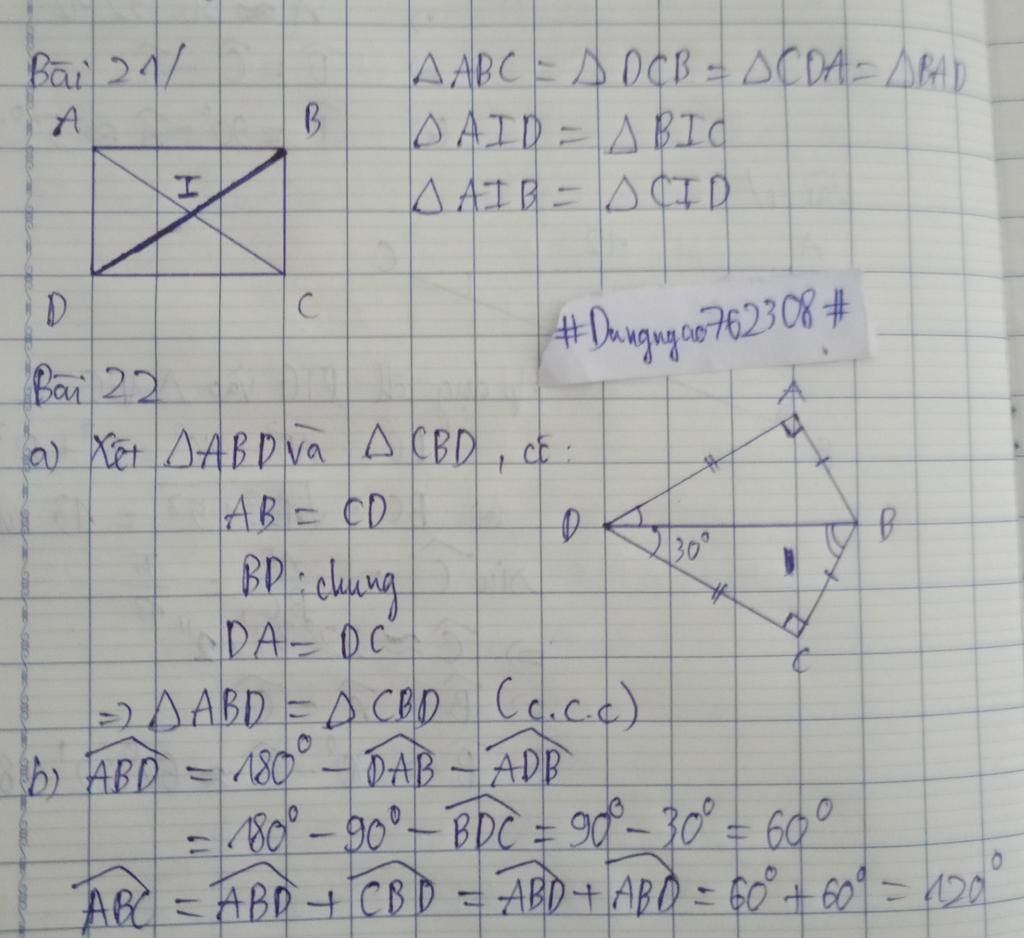 Bài 21/
A B
I
D C
△ABC = △DCB = △CDA = △BAD
△AID = △BIC
△AIB = △CID
#Dungngao762308#
Bài 22
a) Xét △ABD và △CBD, có:
AB = CD
BD : chung
DA = DC
=> △ABD = △CBD (c.c.c)
A
D 30° B
C
b) \widehat{ABD} = 180° - \widehat{DAB} - \widehat{ADB}
= 180° - 90° - \widehat{BDC} = 90° - 30° = 60°
\widehat{ABC} = \widehat{ABD} + \widehat{CBD} = \widehat{ABD} + \widehat{ABD} = 60° + 60° = 120°